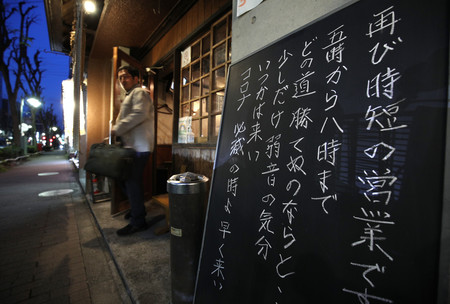 再び時短の営業です
五時から八時まで
どの道勝てぬのならと、
少しだけ弱音の気分
いつかは来い
コロナ必滅の時よ早く来い